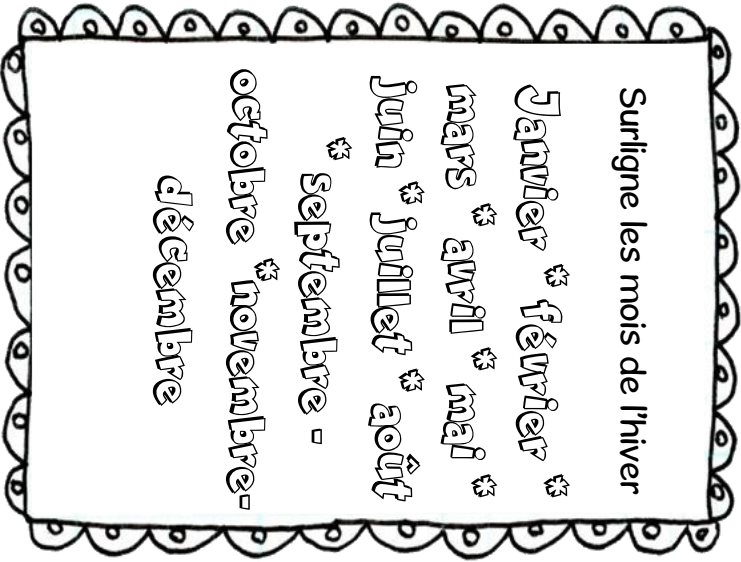 Surligne les mois de l'hiver
Janvier * février *
mars * avril * mai *
juin * juillet * août
* septembre -
octobre * novembre-
décembre